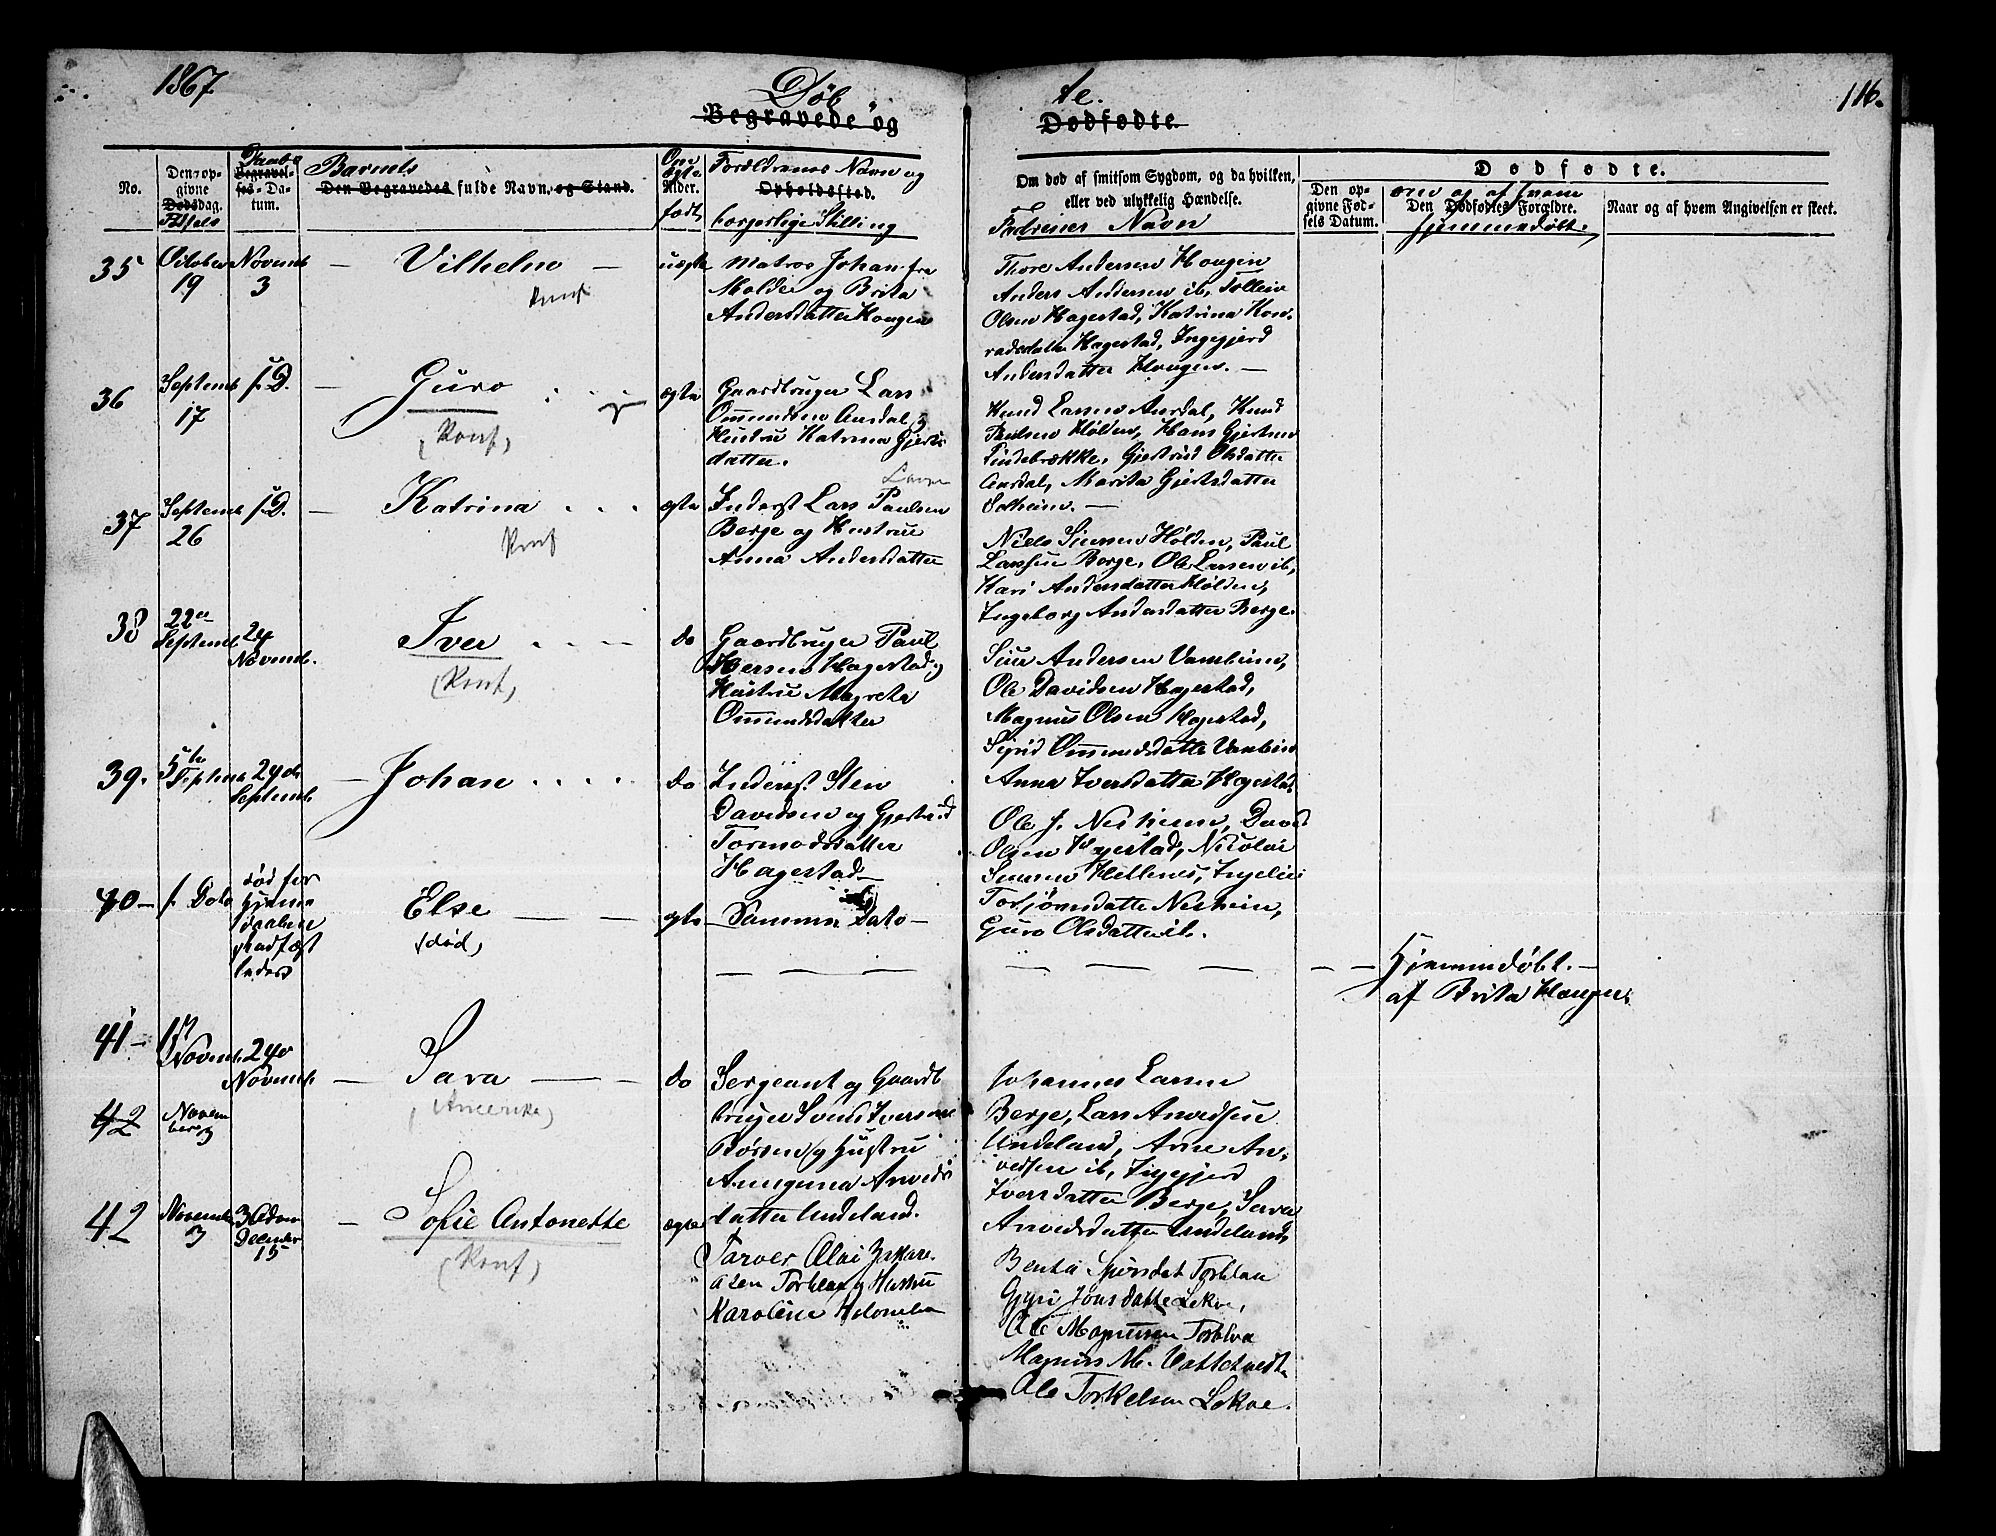 1867
Döb te.
116.
Begravede og Dødfødte.
No.
Den opgivne Dødsdag. Fødsels
Daabs Begravelses-Datum.
Barnets
Den Begravedes fulde Navn, og Stand.
Om ægte Alder. født
Forældrenes Navn og
Opholdssted.
borgerlige Stilling
Om død af smitsom Sygdom, og da hvilken,
eller ved ulykkelig Hændelse.
Faddernes Navn
Dødfødte.
Den opgivne Fødsels Datum.
om og af hvem
Den Dødfødtes Forældre.
hjemmedöbt.
Naar og af hvem Angivelsen er skeet.
35
October 19
Novemb 3
Vilhelm
Konf
uægte
Matros Johan fra
Molde og Brita
Andersdatter Haugen
Thore Andersen Haugen
Anders Andersen ib, Tolleiv
Olsen Hagestad, Katrina Kon-
radsdatter Hagestad, Ingegjerd
Andersdatter Haugen.
36
Septemb 17
s. D.
Guro
(Konf)
ægte
Gaardbruger Lars
Ommundsen Aasdal og
Hustru Katrina Gjerts
datter.
Knud Larsen Aasdal, Knud
Paulsen Hølden, Hans Gjertsen
Lindebrække, Gjertrud Olsdatter
Aasdal, Marita Gjertsdatter
Solheim.
37
Septemb 26
s. D.
Katrina
Konf
ægte
Inderst Lars Paulsen
Berge og Hustrue
Anna Andersdatter
Niels Simsen Hølden, Paul
Larssen Berge, Ole Larsen ib,
Kari Andersdatter Hølden,
Ingeborg Andersdatter Berge.
38
22de Septemb
24 Novemb.
Iver
(Konf)
do
Gaardbruger Paul
Iversen Hagestad og
Hustrue Magreta
Ommundsdatter
Siur Andersen Vambeim,
Ole Davidsen Hagestad,
Magnus Olsen Hagestad,
Sigrid Ommundsdatte Vambeim
Anna Iversdatter Hagestad
39.
5te Septemb
24de Septemb.
Johan
do
Inderst Sten
Davidsen og Gjertrud
Tormodsdatter
Hagestad
Ole J. Nesheim, David
Olsen Hagestad, Nicolai
Simsen Hellenes, Ingelei
Torbjörnsdatte Nesheim,
Guro Olsdatter ib.
40
s. Dato
død før
hjemme
daaben
stadfæst
tedes
Else
(död)
ægte
Samme Dato
Hjemmedöbt.
af Brita Haugen
41
17 Novemb.
24de Novemb.
Sara
(Amerika)
do
Sergeant og Gaardb
bruger Svend Iversen
Børsem og Hustru
Annguna Arveds
datter Undeland.
Johannes Larsen
Berge, Lars Arvedsen
Undeland, Arne Ar-
vedsen ib, Ingegjerd
Iversdatter Berge, Sara
Arvedsdatter Undeland,
42
November 3
42
November 3
3die Adven December 15
Sofie Antonette
(Konf)
ægte
Farver Olai Zakari-
asen Torblaa og Hustru
Karoline Holomeba
Benta Sjursdat Torblaa
Gyri Jonsdatte Lekve,
Ole Magnussen Torblaa
Magnus M. Vattetvedt
Ole Torkelsen Lekve.